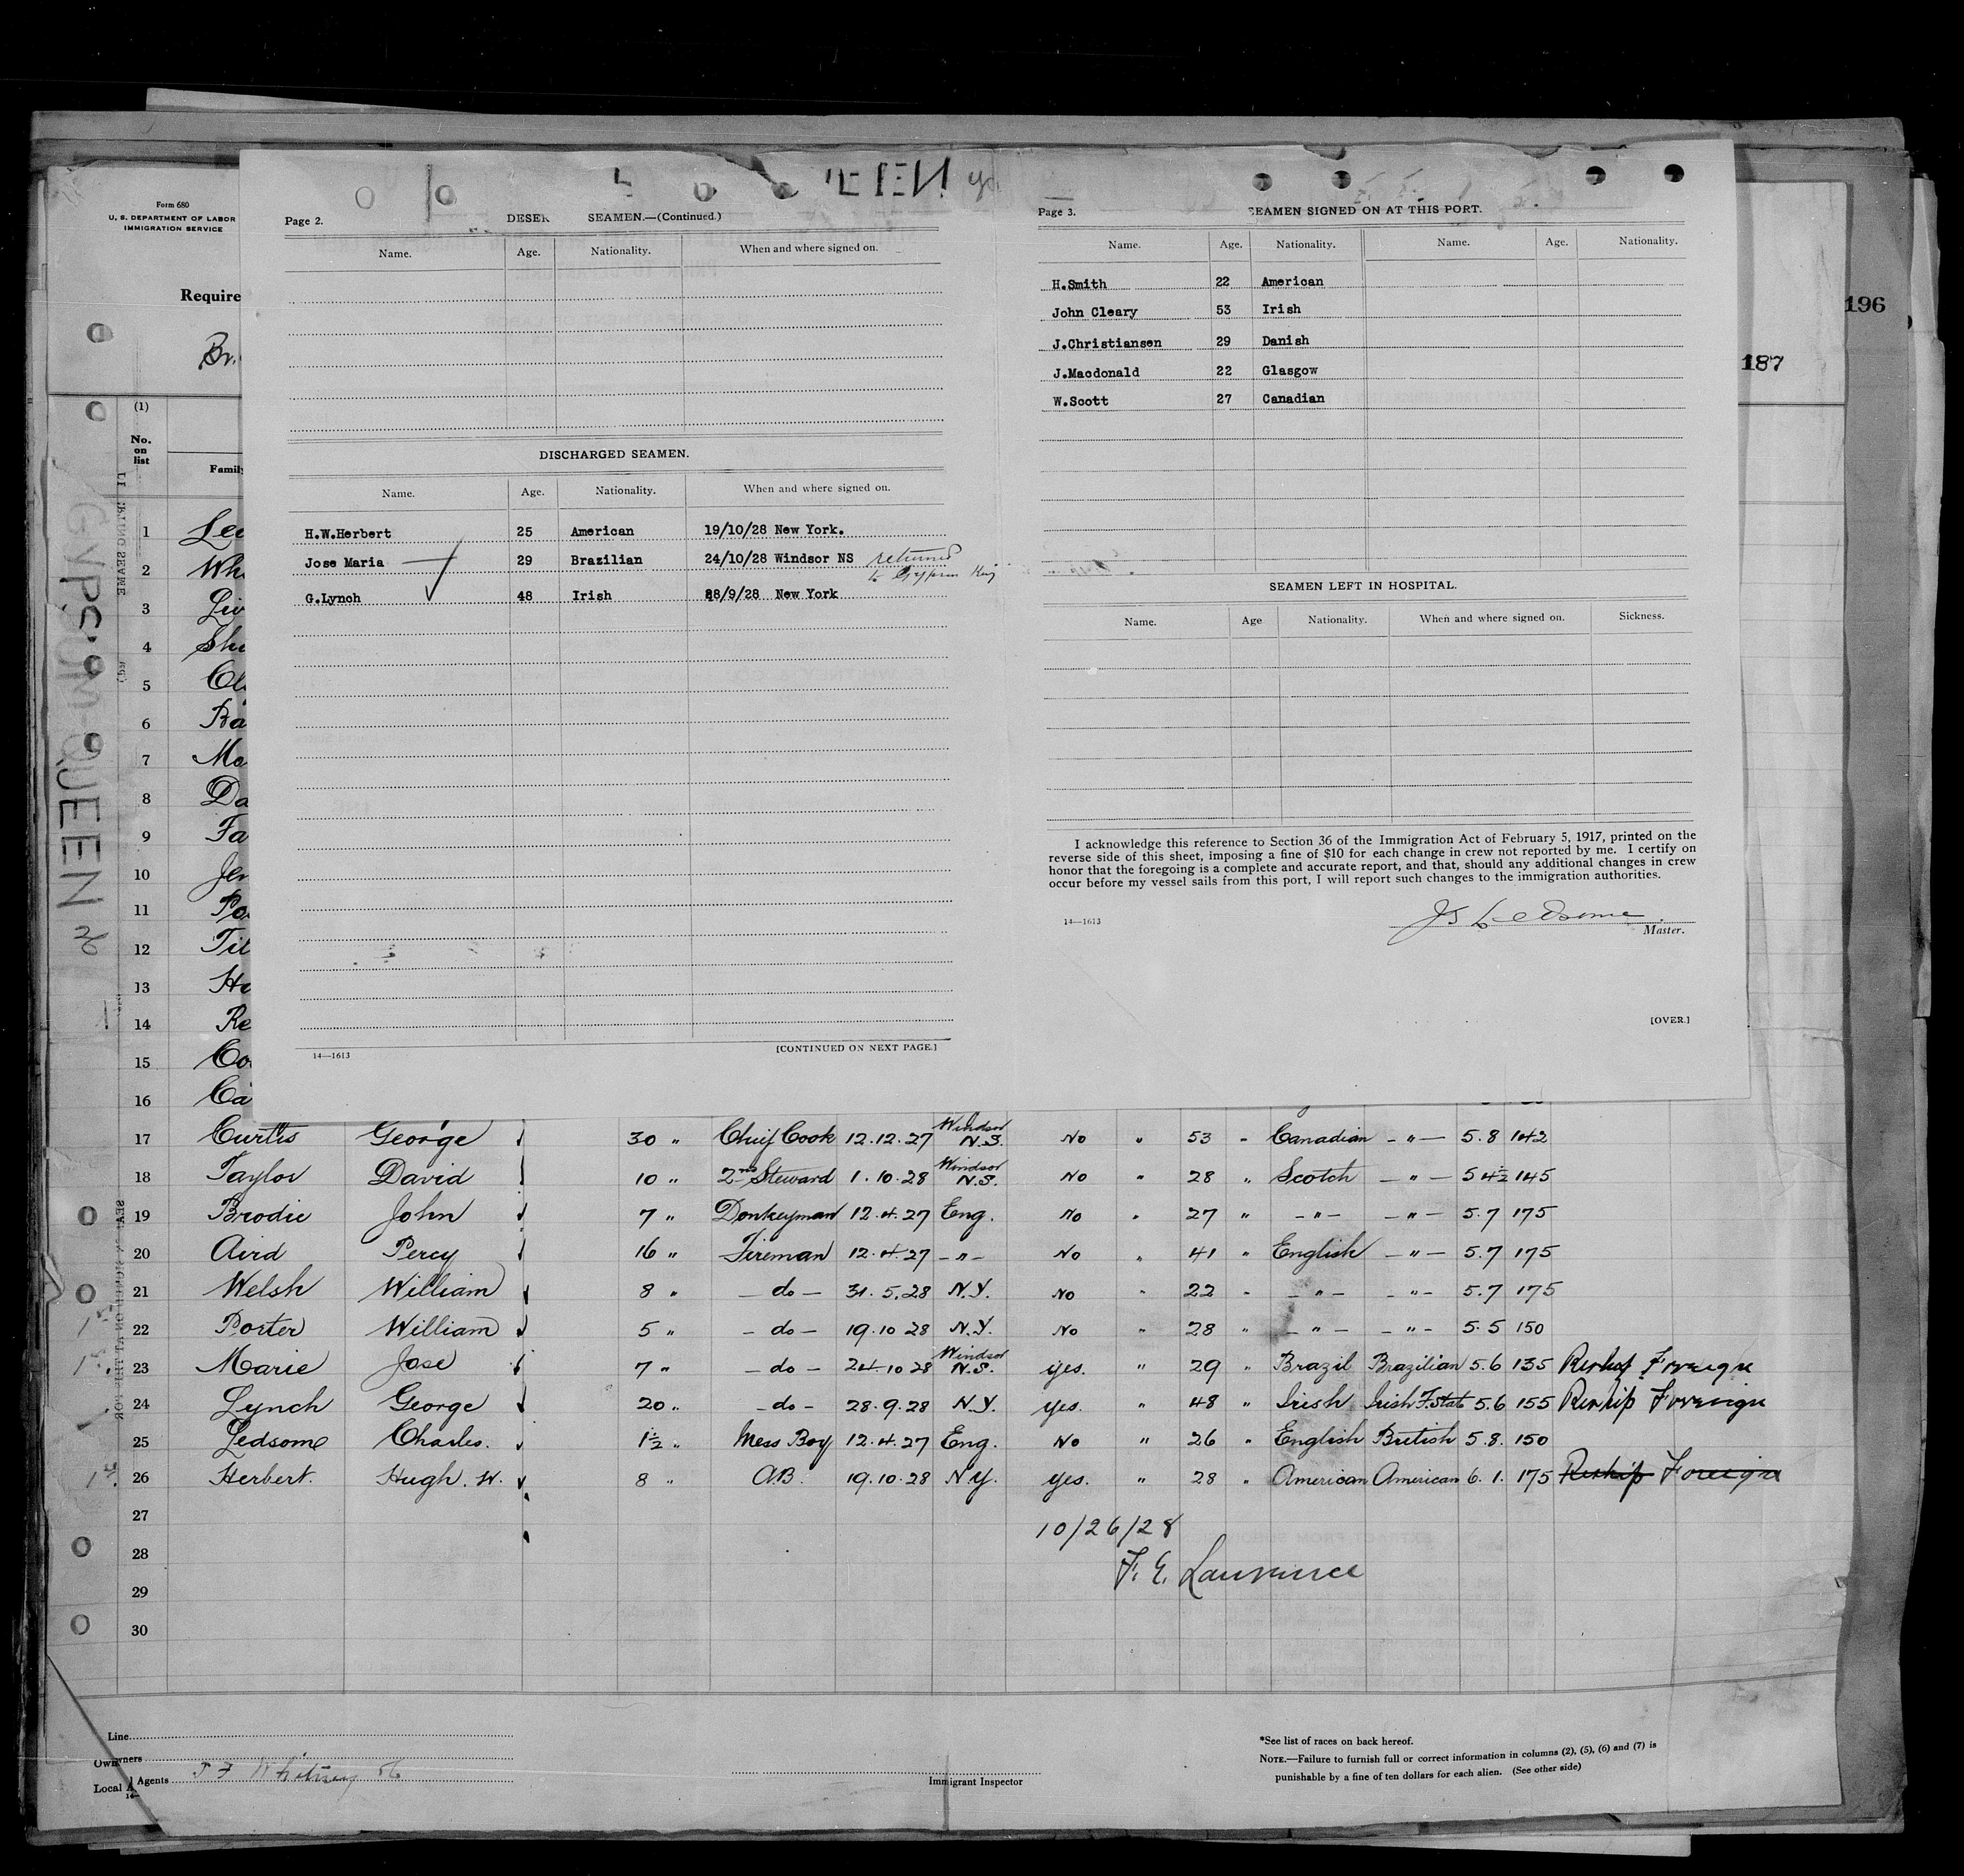 Form 680
U. S. DEPARTMENT OF LABOR
IMMIGRATION SERVICE
Require
Br.
196
187
GYPSUM QUEEN
Page 2.
DESER SEAMEN.—(Continued.)
Name. Age. Nationality. When and where signed on.
DISCHARGED SEAMEN.
Name. Age. Nationality. When and where signed on.
H.W.Herbert 25 American 19/10/28 New York.
Jose Maria 29 Brazilian 24/10/28 Windsor NS returned
to Gypsum King
G.Lynch 48 Irish 28/9/28 New York
14—1613
[CONTINUED ON NEXT PAGE.]
Page 3.
SEAMEN SIGNED ON AT THIS PORT.
Name. Age. Nationality. Name. Age. Nationality.
H.Smith 22 American
John Cleary 53 Irish
J.Christiansen 29 Danish
J.Macdonald 22 Glasgow
W.Scott 27 Canadian
SEAMEN LEFT IN HOSPITAL.
Name. Age Nationality. When and where signed on. Sickness.
I acknowledge this reference to Section 36 of the Immigration Act of February 5, 1917, printed on the
reverse side of this sheet, imposing a fine of $10 for each change in crew not reported by me. I certify on
honor that the foregoing is a complete and accurate report, and that, should any additional changes in crew
occur before my vessel sails from this port, I will report such changes to the immigration authorities.
14—1613
Js Ledsome
Master.
[OVER.]
(1)
No.
on
list
Family
1 Led
2 Whi
3 Liv
4 Sha
5 Cl
6 Ra
7 Mo
8 Da
9 Fa
10 Jen
11 Po
12 Til
13 Ho
14 Re
15 Co
16 Ca
17 Curtis George 30 " Chief Cook 12.12.27 Windsor N.S. No " 53 " Canadian — " — 5.8 142
18 Taylor David 10 " 2nd Steward 1.10.28 Windsor N.S. No " 28 " Scotch — " — 5 4½ 145
19 Brodie John 7 " Donkeyman 12.4.27 Eng. No " 27 " — " — — " — 5.7 175
20 Aird Percy 16 " Fireman 12.4.27 — " — No " 41 " English — " — 5.7 175
21 Welsh William 8 " — do — 31.5.28 N.Y. No " 22 " — " — — " — 5.7 175
22 Porter William 5 " — do — 19.10 28 N.Y. No " 28 " — " — — " — 5.5 150
23 Marie Jose 7 " — do — 24.10 28 Windsor N.S. yes. " 29 " Brazil Brazilian 5.6 135 Reship Foreign
24 Lynch George 20 " — do — 28.9.28 N.Y. yes. " 48 " Irish Irish F. State 5.6 155 Reship Foreign
25 Ledsome Charles. 1½ " Mess Boy 12.4.27 Eng. No " 26 " English British 5.8. 150
26 Herbert. Hugh. W. 8 " A.B. 19.10.28 N.Y. yes. " 28 " American American 6.1. 175 Reship Foreign
27
28
29
30
10/26/28
F. E. Lawrence
Line
Owners
Local Agents
14—
Immigrant Inspector
*See list of races on back hereof.
NOTE.—Failure to furnish full or correct information in columns (2), (5), (6) and (7) is
punishable by a fine of ten dollars for each alien. (See other side)